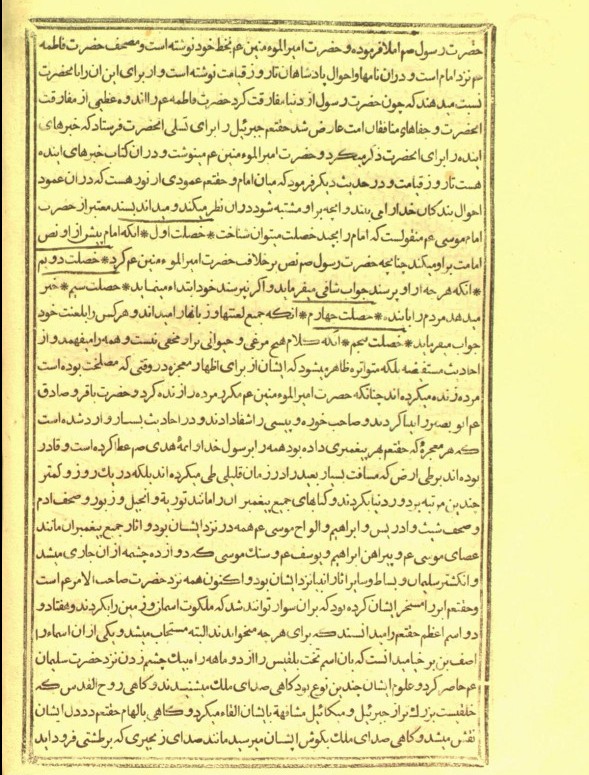 حضرت رسول صم املا فرموده و حضرت امیر الموء منین عم بخط خود نوشته است و مصحف حضرت فاطمه
عم نزد امام است و دران نامها و احوال پادشاهان تا روز قیامت نوشته است و از برای این ان را بانحضرت
نسبت میدهند که چون حضرت رسول از دنیا مفارقت کرد حضرت فاطمه عم را اندوه عظیمی از مفارقت
انحضرت و جفاهای منافقان امت عارض شد حقتعم جبرئیل را برای تسلی انحضرت فرستاد که خبرهای
اینده را برای انحضرت ذکر میکرد و حضرت امیر الموء منین عم مینوشت و دران کتاب خبرهای اینده
هست تا روز قیامت و در حدیث دیگر فرمود که میان امام و حقتعم عمودی از نور هست که دران عمود
احوال بندکان خدا را می بیند و انچه بر او مشتبه شود دران نظر میکند و میداند بسند معتبر از حضرت
امام موسی عم منقولست که امام را بچند خصلت میتوان شناخت * خصلت اول * انکه امام پیش از او نص
امامت بر او میکند چنانچه حضرت رسول صم نص بر خلافت حضرت امیر الموء منین عم کرد * خصلت دویم
* انکه هر چه از او پرسند جواب شافی میفرماید و اکر نپرسند خود ابتدا مینماید * خصلت سیم * خبر
میدهد مردم را باینده * خصلت چهارم * انکه جمیع لغتها و زبانها را میداند و هر کس را بلغت خود
جواب میفرماید * خصلت پنجم * انکه کلام هیچ مرغی و حیوانی بر او مخفی نیست و همه را میفهمد و از
احادیث مستفیضه بلکه متواتره ظاهر میشود که ایشان از برای اظهار معجزه در وقتی که مصلحت بوده است
مرده زنده میکرده اند چنانکه حضرت امیر الموء منین عم مکرر مرده را زنده کرد و حضرت باقر و صادق
عم ابو بصیر را بینا کردند و صاحب خوره و پیسی را شفا دادند و در احادیث بسیار وارد شده است
که هر معجزهٔ که حقتعم بهر پیغمبری داده بود همه را برسول خدا و ائمهٔ هدی صم عطا کرده است و قادر
بوده اند بر طی ارض که مسافت بسیار بعید را در زمان قلیلی طی میکرده اند بلکه در یک روز و کمتر
چندین مرتبه بر دور دنیا بکردند و کتابهای جمیع پیغمبران را مانند توریة و انجیل و زبور و صحف ادم
و صحف شیث و ادریس و ابراهیم و الواح موسی عم همه در نزد ایشان بود و اثار جمیع پیغمبران مانند
عصای موسی عم و پیراهن ابراهیم و یوسف عم و سنک موسی که دوازده چشمه از ان جاری میشد
و انکشتر سلیمان و بساط و سایر اثار انبیا نزد ایشان بود و اکنون همه نزد حضرت صاحب الامر عم است
و حقتعم ابر را مسخر ایشان کرده بود که بران سوار توانند شد که ملکوت اسمان و زمین را بکردند و هفتاد و
دو اسم اعظم حقتعم را میدانستند که برای هر چه میخوانند البته مستجاب میشد و یکی از ان اسماء را
اصف بن برخیا میدانست که بان اسم تخت بلقیس را از دو ماهه راه بیک چشم زدن نزد حضرت سلیمان
عم حاضر کرد و علوم ایشان چندین نوع بود کاهی صدای ملک میشنیدند و کاهی روح القدس که
خلقیست بزرکتر از جبرئیل و میکائیل مشافهة بایشان القاء میکرد و کاهی بالهام حقتعم در دل ایشان
نقش میشد و کاهی صدای ملک بکوش ایشان میرسید مانند صدای زنجیری که بر طشتی فرود اید